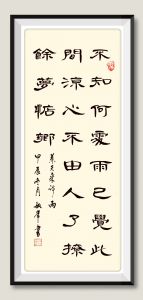 不知何處雨已覺此
間涼心不由人了撩
餘夢惦鄉
雨
甲辰 月 書